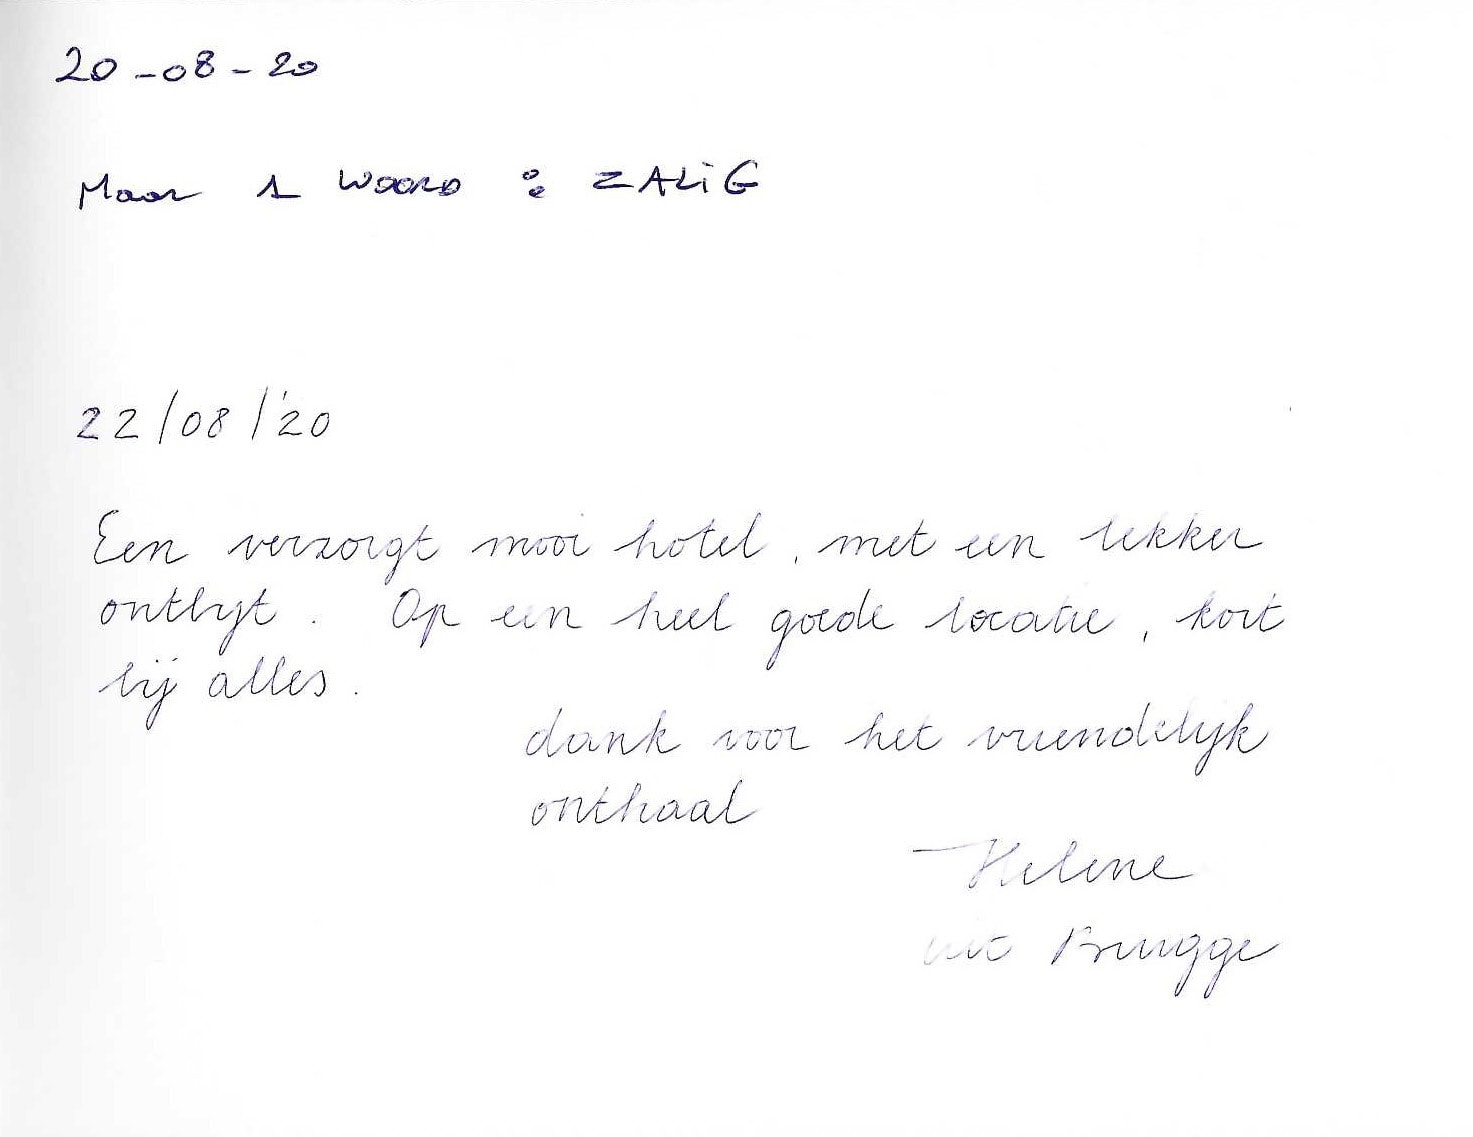 20-08-20
Maar 1 woord : ZALiG
22/08/'20
Een verzorgt mooi hotel, met een lekker
ontbijt. Op een heel goede locatie, kort
bij alles.
dank voor het vriendelijk
onthaal
Helene
uit Brugge